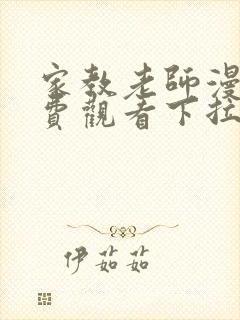 家教老師漫
費觀看下拉
伊茹茹